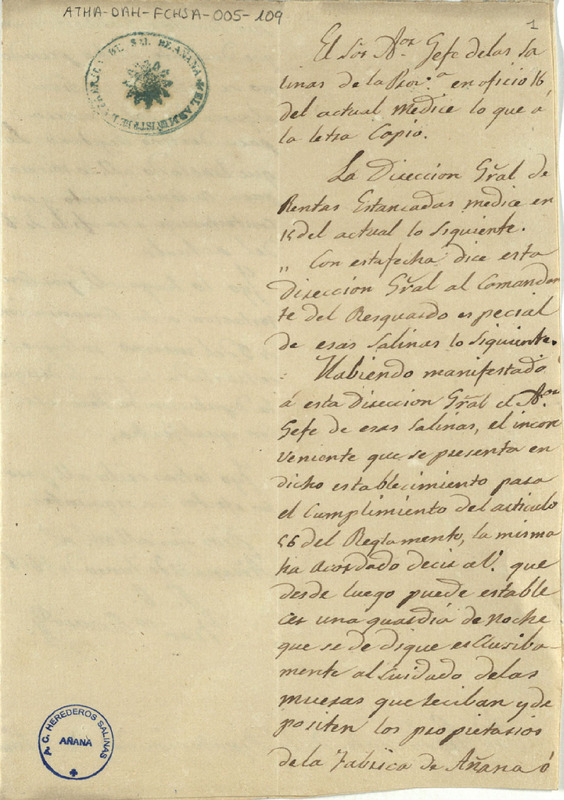 ATHA-DAH-FCHSA-005-109
1
El Sor Aor Gefe delas Sa
linas de la Prov.a en oficio 16
del actual medice lo que a
la letra Copio.
La Direccion Gral de
Rentas Estancadas medice en
15 del actual lo siguiente.
" Con estafecha dice esta
Direccion Gral al Comandan
te del Resguardo especial
de esas Salinas lo siguiente.
Habiendo manifestado
á esta Direccion Gral el Aor
Gefe de esas Salinas, el incon
veniente que se presenta en
dicho establecimiento para
el Cumplimiento del articulo
56 del Reglamento, la misma
ha acordado decir al V. que
desde luego puede estable
cer una guardia de noche
que se dedique esclusiba-
mente al Cuidado delas
mueras que reciban y de
positen los propietarios
de la Fabrica de Añana ó
A. C. HEREDEROS SALINAS
AÑANA